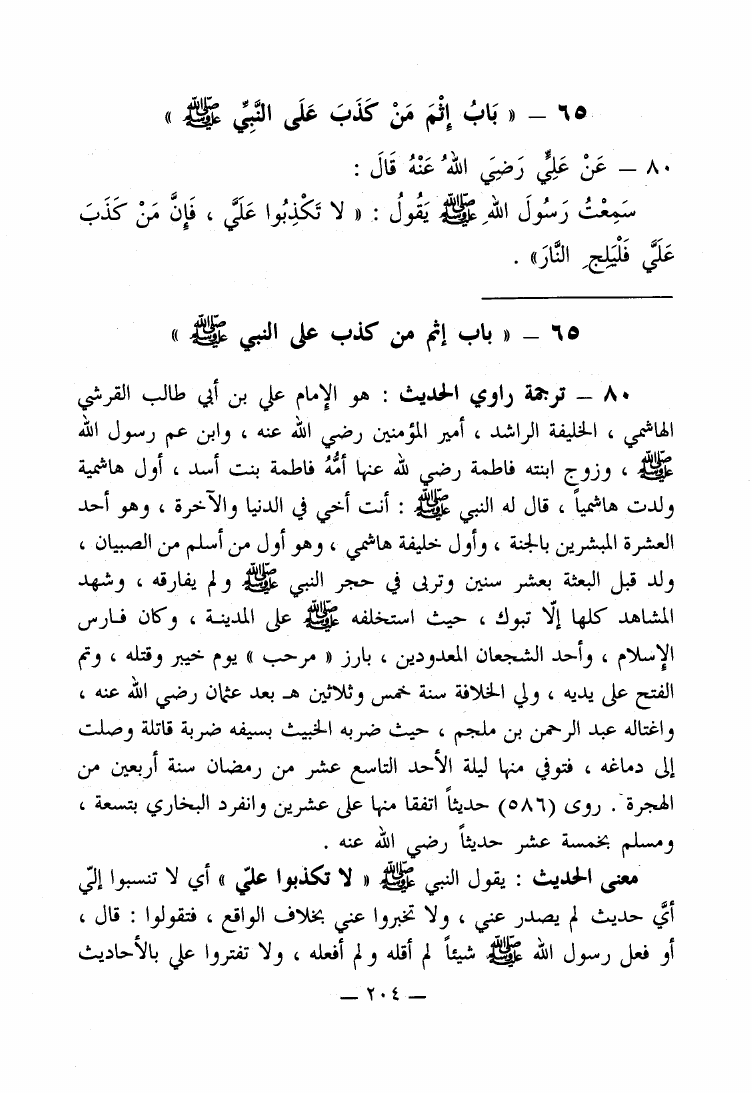 ٦٥ – « بَابُ إِثْمَ مَنْ كَذَبَ عَلَى النَّبِيِّ ﷺ »
٨٠ – عَنْ عَلِيٍّ رَضِيَ اللهُ عَنْهُ قَالَ :
سَمِعْتُ رَسُولَ اللهِ ﷺ يَقُولُ : « لا تَكْذِبُوا عَلَيَّ ، فَإِنَّ مَنْ كَذَبَ
عَلَيَّ فَلْيَلِجِ النَّارَ» .
٦٥ – « باب إثم من كذب على النبي ﷺ »
٨٠ – ترجمة راوي الحديث : هو الإمام علي بن أبي طالب القرشي
الهاشمي ، الخليفة الراشد ، أمير المؤمنين رضي الله عنه ، وابن عم رسول الله
ﷺ ، وزوج ابنته فاطمة رضي لله عنها أمُّهُ فاطمة بنت أسد ، أول هاشمية
ولدت هاشمياً ، قال له النبي ﷺ : أنت أخي في الدنيا والآخرة ، وهو أحد
العشرة المبشرين بالجنة ، وأول خليفة هاشمي ، وهو أول من أسلم من الصبيان ،
ولد قبل البعثة بعشر سنين وتربى في حجر النبي ﷺ ولم يفارقه ، وشهد
المشاهد كلها إلّا تبوك ، حيث استخلفه ﷺ على المدينة ، وكان فارس
الإسلام ، وأحد الشجعان المعدودين ، بارز « مرحب » يوم خيبر وقتله ، وتم
الفتح على يديه ، ولي الخلافة سنة خمس وثلاثين هـ بعد عثمان رضي الله عنه ،
واغتاله عبد الرحمن بن ملجم ، حيث ضربه الخبيث بسيفه ضربة قاتلة وصلت
إلى دماغه ، فتوفي منها ليلة الأحد التاسع عشر من رمضان سنة أربعين من
الهجرة . روى (٥٨٦) حديثاً اتفقا منها على عشرين وانفرد البخاري بتسعة ،
ومسلم بخمسة عشر حديثاً رضي الله عنه .
معنى الحديث : يقول النبي ﷺ « لا تكذبوا عليّ » أي لا تنسبوا إليّ
أيَّ حديث لم يصدر عني ، ولا تخبروا عني بخلاف الواقع ، فتقولوا : قال ،
أو فعل رسول الله ﷺ شيئاً لم أقله ولم أفعله ، ولا تفتروا علي بالأحاديث
– ٢٠٤ –